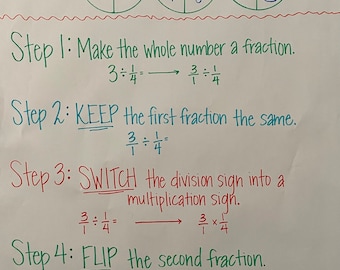 Step 1: Make the whole number a fraction.
3 ÷ 1/4 = ⟶ 3/1 ÷ 1/4
Step 2: KEEP the first fraction the same.
3/1 ÷ 1/4 =
Step 3: SWITCH the division sign into a
multiplication sign.
3/1 ÷ 1/4 = ⟶ 3/1 × 1/4
Step 4: FLIP the second fraction.